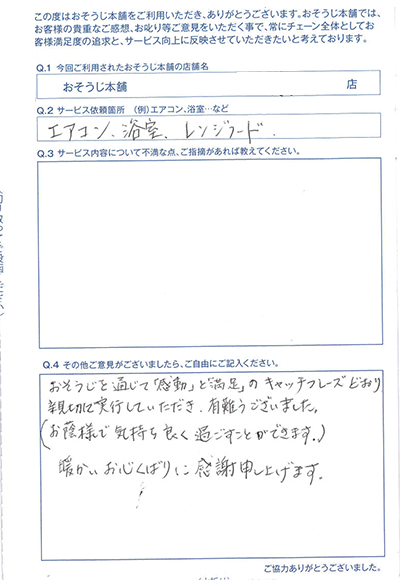 この度はおそうじ本舗をご利用いただき、ありがとうございます。おそうじ本舗では、
お客様の貴重なご感想、お叱り等ご意見をいただく事で、常にチェーン全体としてお
客様満足度の追求と、サービス向上に反映させていただきたいと考えております。
Q.1 今回ご利用されたおそうじ本舗の店舗名
おそうじ本舗 店
Q.2 サービス依頼箇所 (例)エアコン、浴室…など
エアコン、浴室、レンジフード、
Q.3 サービス内容について不満な点、ご指摘があれば教えてください。
Q.4 その他ご意見がございましたら、ご自由にご記入ください。
おそうじを通じて「感動」と「満足」のキャッチフレーズどおり
親切に実行していただき、有難うございました。
(お蔭様で気持ち良く過ごすことができます。)
暖かいお心くばりに感謝申し上げます。
ご協力ありがとうございました。